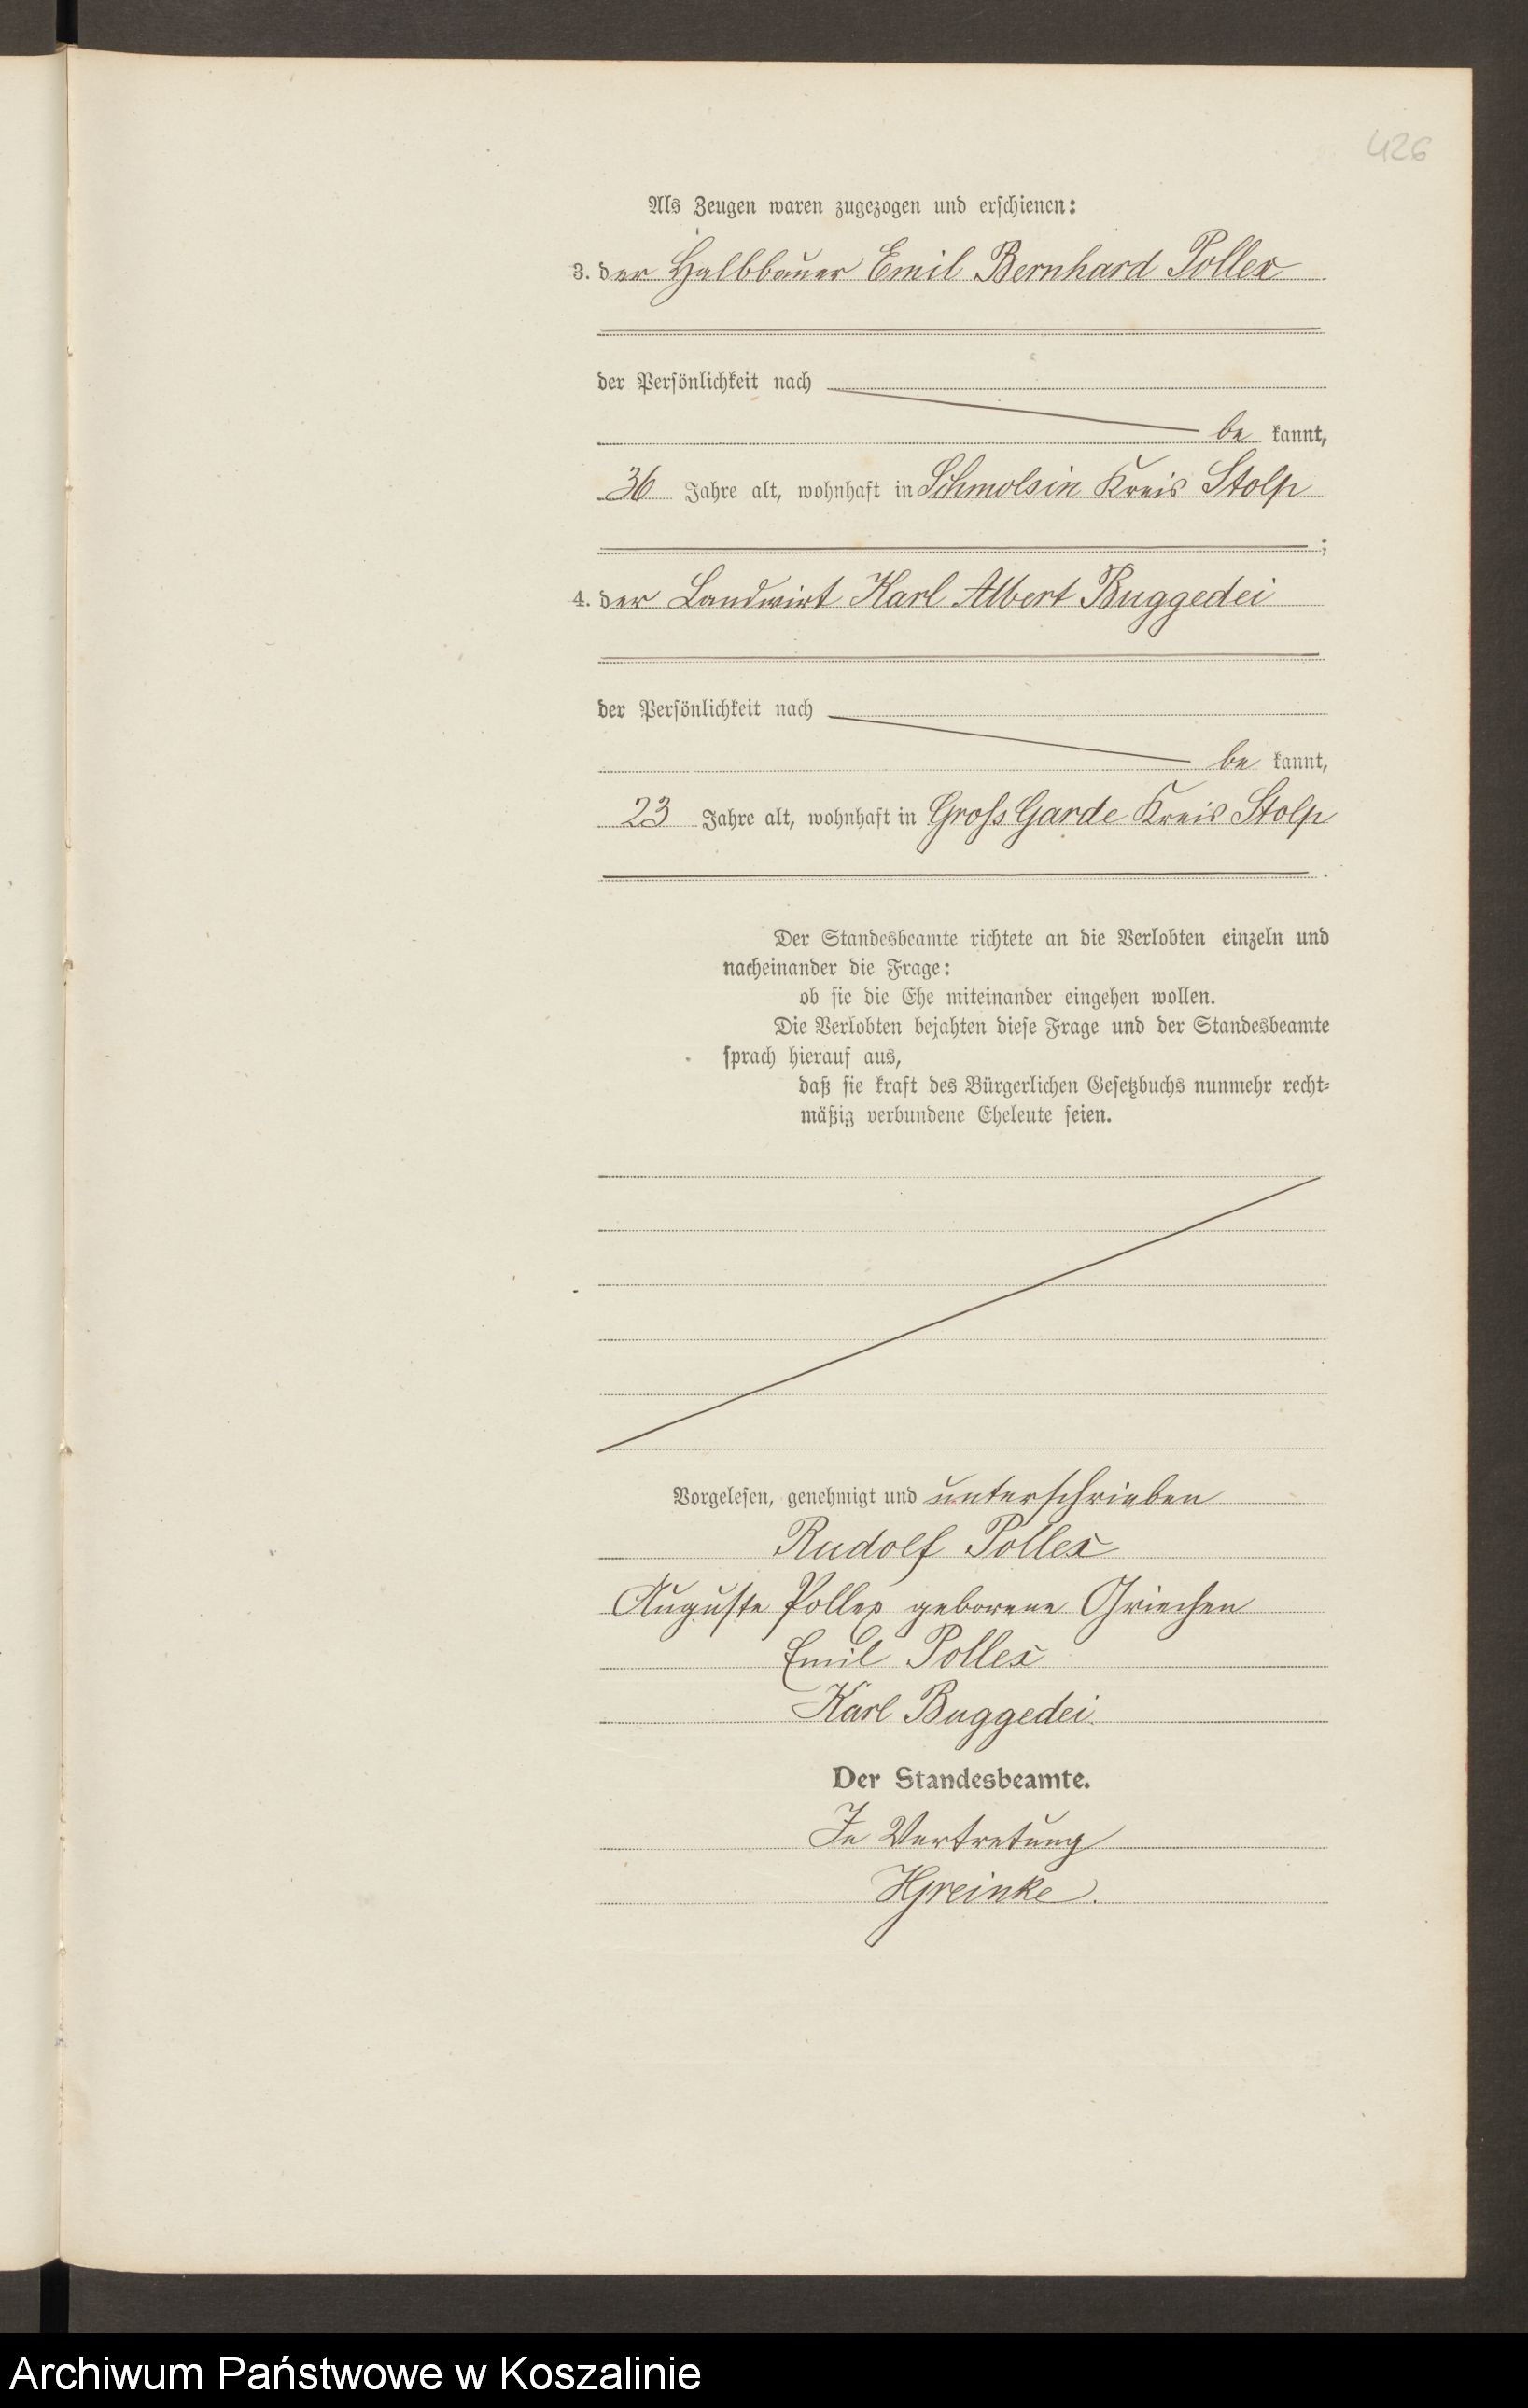 426
Als Zeugen waren zugezogen und erschienen:
3. der Halbbauer Emil Bernhard Pollex
der Persönlichkeit nach
be kannt,
36 Jahre alt, wohnhaft in Schmolsin Kreis Stolp
;
4. der Landwirt Karl Albert Buggedei
der Persönlichkeit nach
be kannt,
23 Jahre alt, wohnhaft in Gross Garde Kreis Stolp
.
Der Standesbeamte richtete an die Verlobten einzeln und
nacheinander die Frage:
ob sie die Ehe miteinander eingehen wollen.
Die Verlobten bejahten diese Frage und der Standesbeamte
sprach hierauf aus,
daß sie kraft des Bürgerlichen Gesetzbuchs nunmehr recht-
mäßig verbundene Eheleute seien.
Vorgelesen, genehmigt und unterschrieben
Rudolf Pollex
Auguste Pollex geborene Griechen
Emil Pollex
Karl Buggedei.
Der Standesbeamte.
In Vertretung
HGreinke.
Archiwum Państwowe w Koszalinie